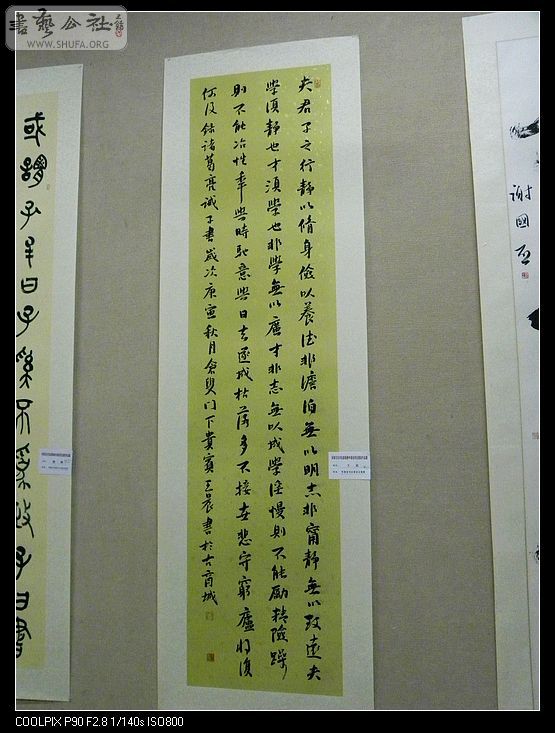 書藝公社
WWW.SHUFA.ORG
夫君子之行靜以脩身儉以養德非澹泊無以明志非甯靜無以致遠夫
學須靜也才須學也非學無以廣才非志無以成學淫慢則不能勵精險躁
則不能冶性年與時馳意與日去遂成枯落多不接世悲守窮廬將復
何及錄諸葛亮誡子書歲次庚寅秋月門下貴賓王晨書於古商城
或謂孔子曰子奚不為政子曰書
謝國
COOLPIX P90 F2.8 1/140s ISO800